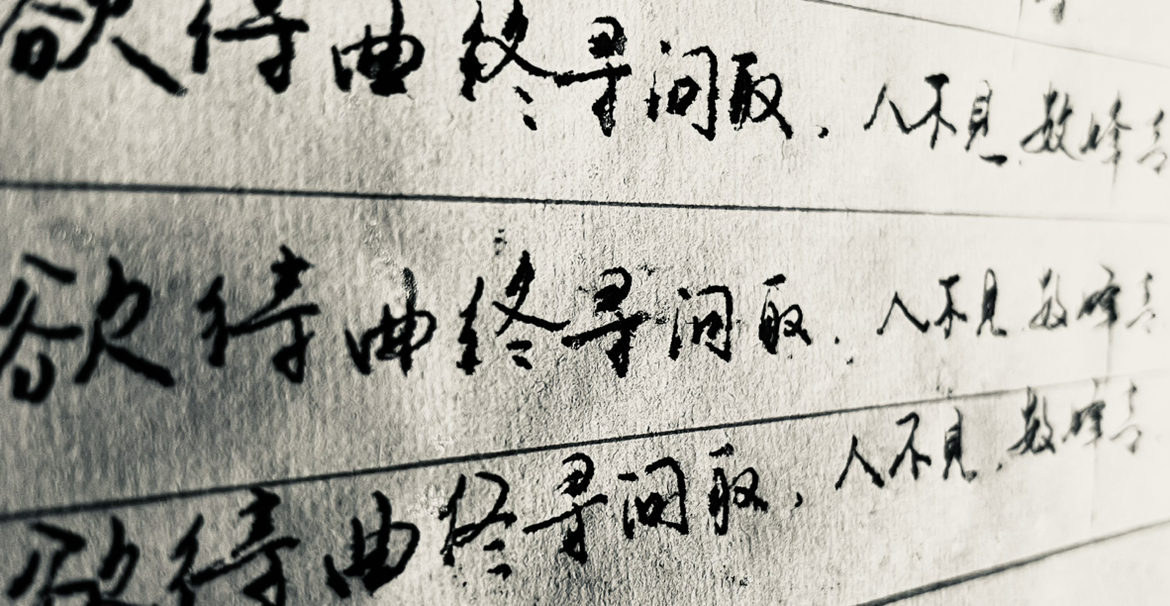 欲待曲终寻问取，人不见，数峰青
欲待曲终寻问取，人不见，数峰青
欲待曲终寻问取，人不见，数峰青